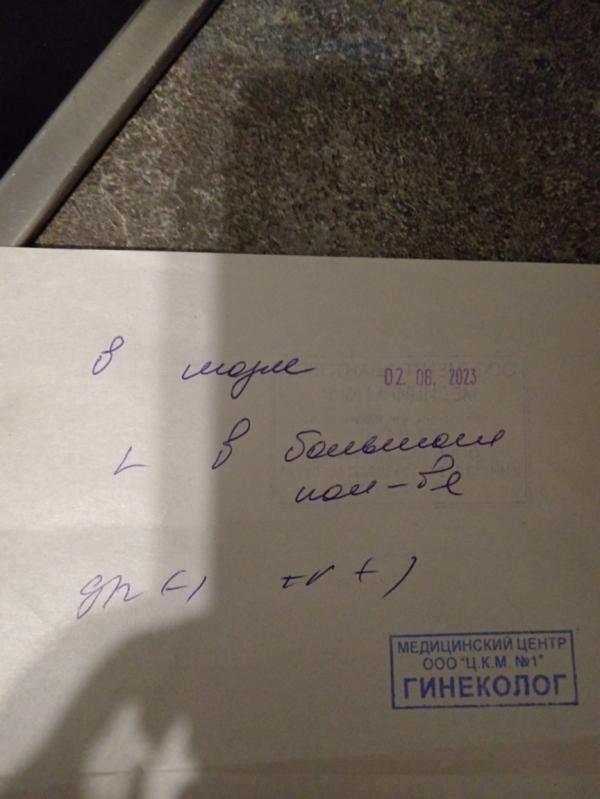 в мазке
02. 08. 2023
L в большом
кол-ве
gn (-) tr (-)
МЕДИЦИНСКИЙ ЦЕНТР
ООО "Ц.К.М. №1"
ГИНЕКОЛОГ